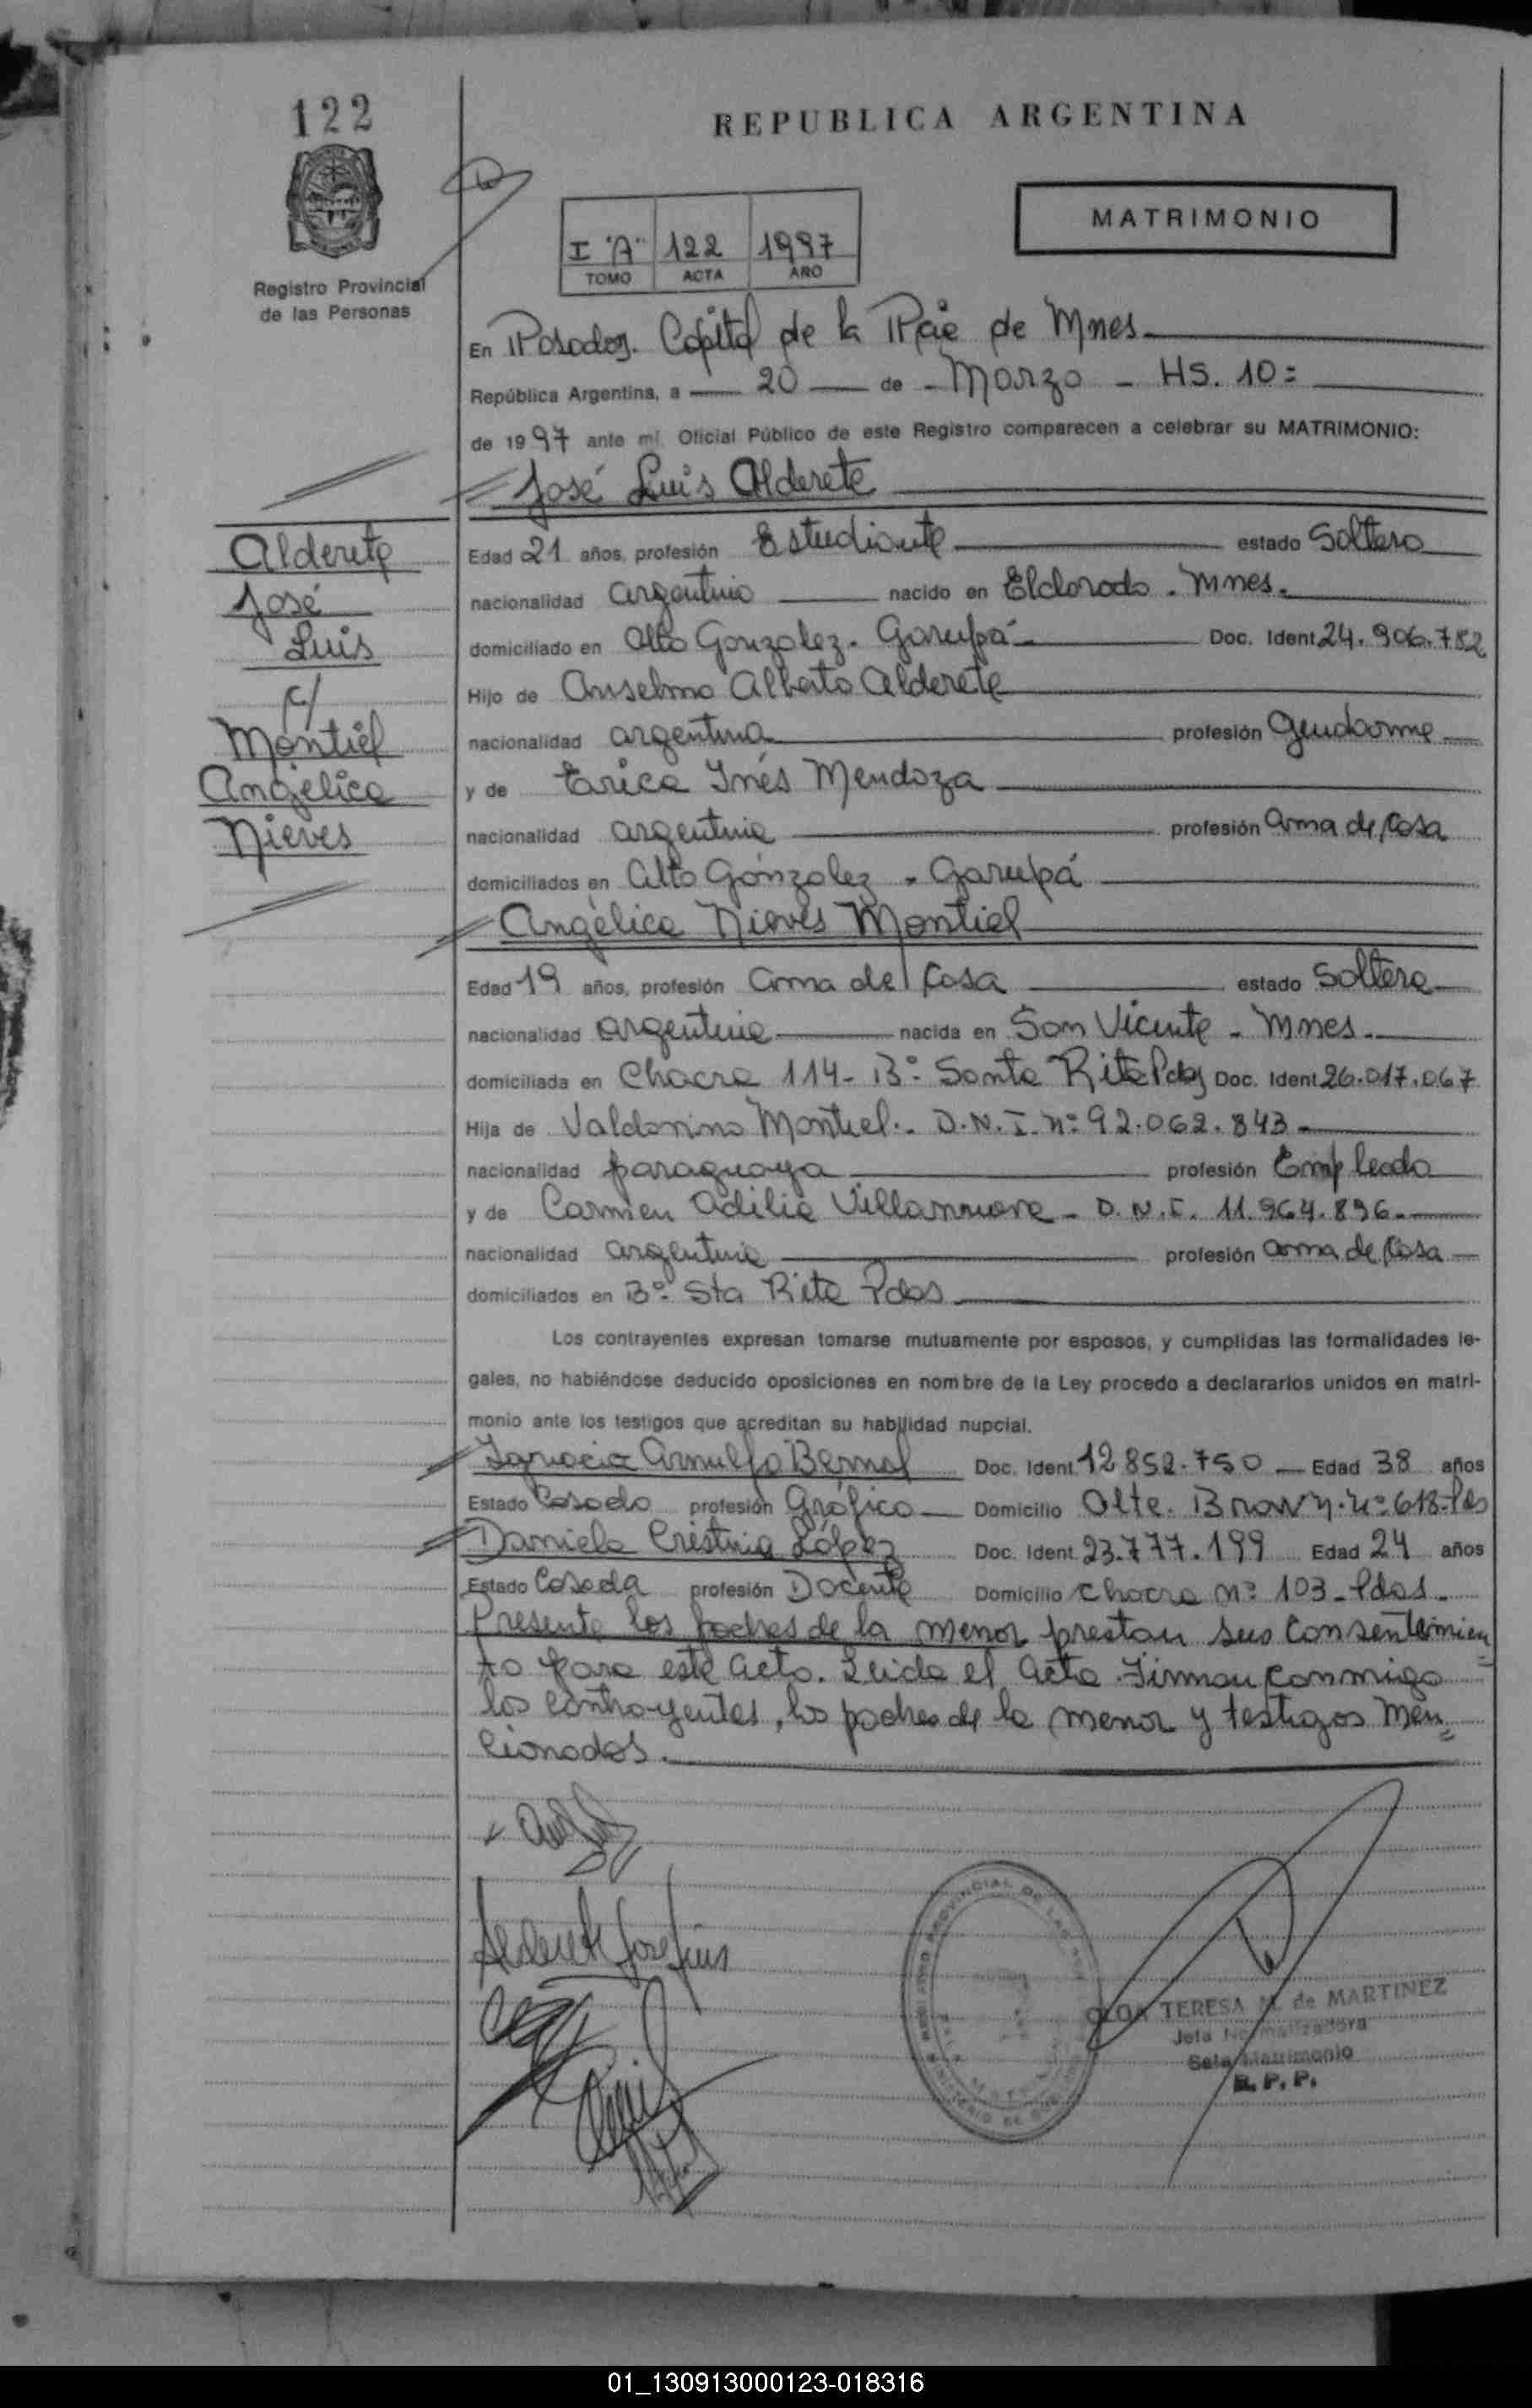 122
REPUBLICA ARGENTINA
MATRIMONIO
I "A" 122 1997
TOMO ACTA AÑO
Registro Provincial
de las Personas
En Posadas. Capital de la Pcia de Mnes.
República Argentina, a 20 de Marzo - HS. 10=
de 1997 ante mí Oficial Público de este Registro comparecen a celebrar su MATRIMONIO:
José Luis Alderete
Alderete
José
Luis
c/
Montiel
Angélica
Nieves
Edad 21 años, profesión Estudiante estado Soltero
nacionalidad argentina nacido en Eldorado - Mnes.
domiciliado en Alto Gonzalez - Garupá Doc. Ident 24.906.782
Hijo de Anselmo Alberto Alderete
nacionalidad argentina profesión Gendarme
y de Erica Inés Mendoza
nacionalidad argentina profesión ama de casa
domiciliados en Alto Gonzalez - Garupá
Angélica Nieves Montiel
Edad 19 años, profesión ama de casa estado Soltera
nacionalidad argentina nacida en San Vicente - Mnes.
domiciliada en Chacra 114 - B° Santa Rita Pdas Doc. Ident 26.017.067
Hija de Valdonino Montiel.- D.N.I. n° 92.062.843
nacionalidad paraguaya profesión Empleado
y de Carmen Adilia Villanueva - D.N.I. 11.964.896
nacionalidad argentina profesión ama de casa
domiciliados en B° Sta Rita Pdas
Los contrayentes expresan tomarse mutuamente por esposos, y cumplidas las formalidades le-
gales, no habiéndose deducido oposiciones en nombre de la Ley procedo a declararlos unidos en matri-
monio ante los testigos que acreditan su habilidad nupcial.
Ignacio Arnulfo Bernal Doc. Ident. 12.852.750 Edad 38 años
Estado Casado profesión Gráfico Domicilio Alte. Brown n° 618-Pdas
Daniela Cristina López Doc. Ident. 23.777.199 Edad 24 años
Estado Casada profesión Docente Domicilio Chacra n° 103 - Pdas.
Presente los padres de la menor prestan sus consentimien
to para este acto. Leida el acta firman conmigo
los contrayentes, los padres de la menor y testigos men
cionados.
Alderete Jose Luis
TERESA M. de MARTINEZ
Jefa Normalizadora
Sala Matrimonio
R. P. P.
01_130913000123-018316